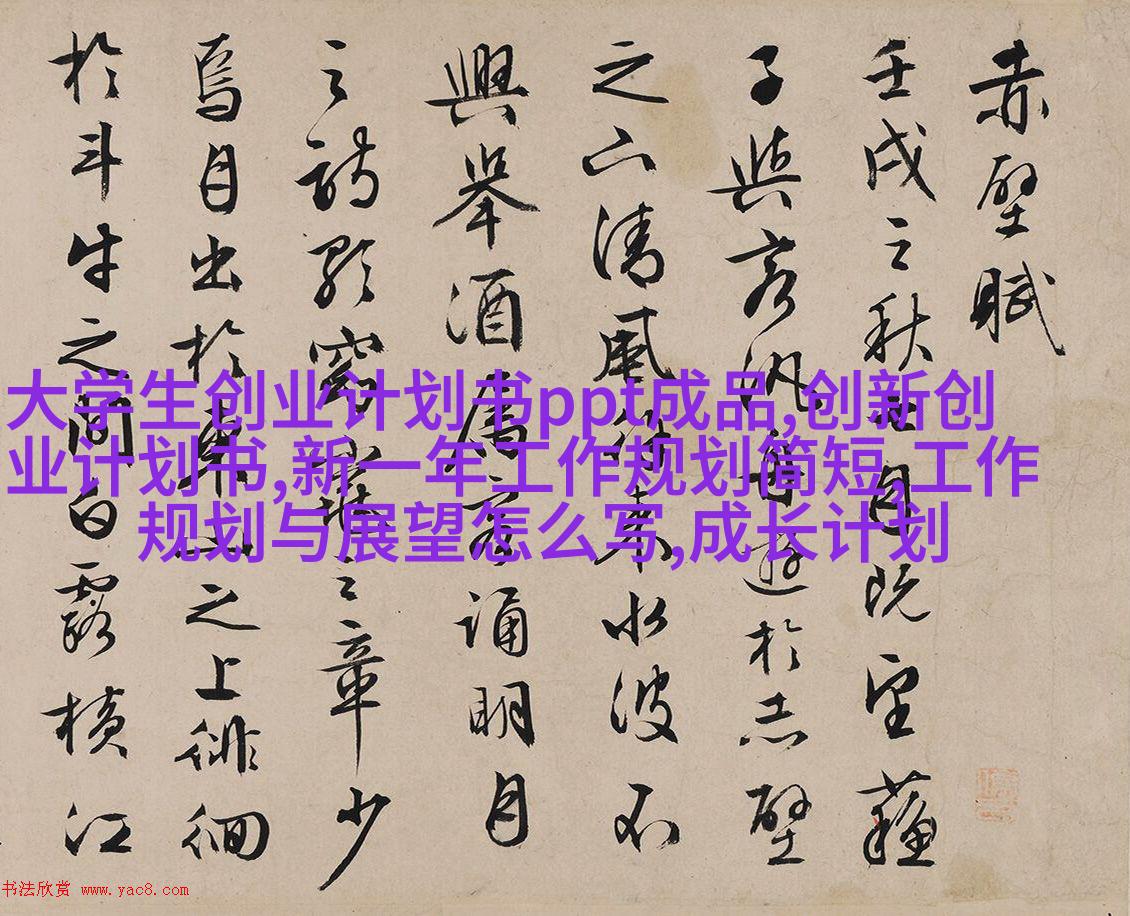 赤壁賦
壬戌之秋七月既望蘇
子與客汎舟遊於赤壁
之下清風徐來水波不
興舉酒屬客誦明月
之詩歌窈窕之章少
焉月出於東山之上徘徊
於斗牛之間白露橫江
大学生创业计划书ppt成品,创新创
业计划书,新一年工作规划简短,工作
规划与展望怎么写,成长计划
书法欣赏 www.yac8.com